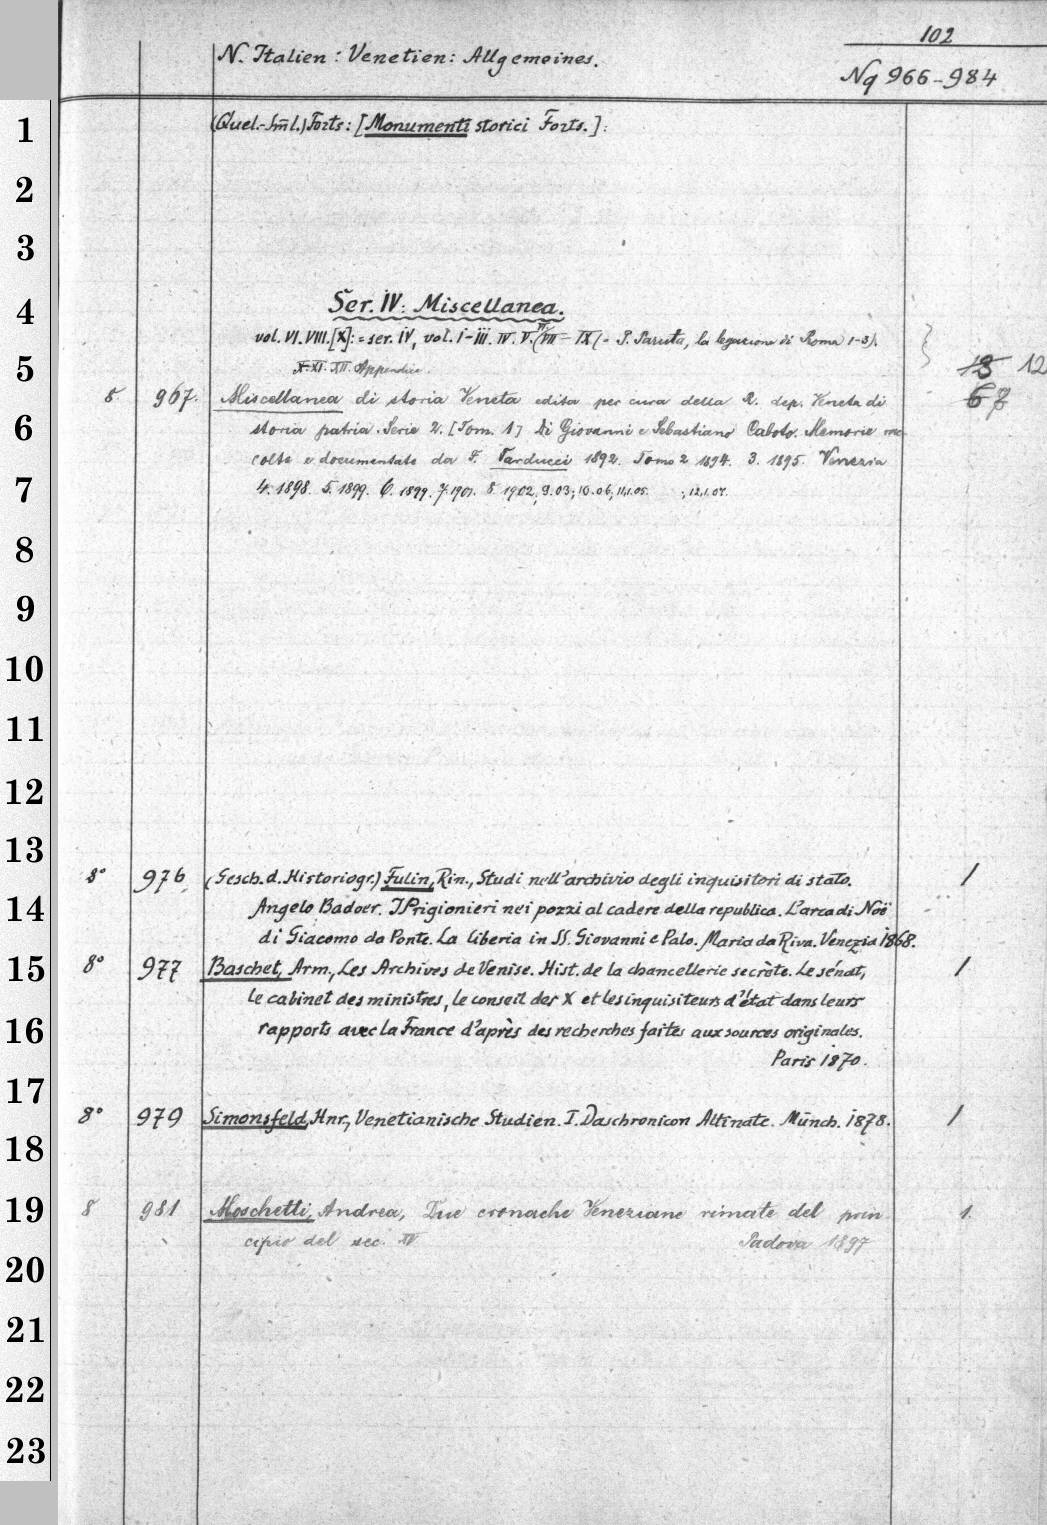 102
N. Italien: Venetien: Allgemeines.
Nq 966-984
1
(Quel.-Sm̅l.) Forts: [Monumenti storici Forts.]:
2
3
4
Ser. IV: Miscellanea.
vol. VI. VIII. [X]: = ser. IV, vol. I-III. IV. V. VI (VII-IX (= P. Paruta, la legazione di Roma 1-3).
5
X. XI. XII. Appendice.
13 12
8 967. Miscellanea di storia Veneta edita per cura della R. dep. Veneta di
6 7
6
storia patria. Serie 2. [Tom. 1] Di Giovanni e Sebastiano Caboto. Memorie rac-
colte e documentate da F. Tarducci 1892. Tomo 2 1894. 3. 1895. Venezia
7
4. 1898. 5. 1899. 6. 1899. 7. 1901. 8. 1902, 9.03; 10.06, 11,1.05. ; 12,1.07.
8
9
10
11
12
13
8° 976 (Gesch. d. Historiogr.) Fulin, Rin., Studi nell'archivio degli inquisitori di stato. 1
14
Angelo Badoer. I Prigionieri nei pozzi al cadere della republica. L'arca di Noë
di Giacomo da Ponte. La liberia in SS. Giovanni e Palo. Maria da Riva. Venezia 1868.
15
8° 977 Baschet, Arm., Les Archives de Venise. Hist. de la chancellerie secrète. Le sénat, 1
le cabinet des ministres, le conseil des X et les inquisiteurs d'état dans leurs
16
rapports avec la France d'après des recherches faites aux sources originales.
Paris 1870.
17
8° 979 Simonsfeld, Hnr., Venetianische Studien. I. Das chronicon Altinate. Münch. 1878. 1
18
19
8 981 Moschetti, Andrea, Due cronache Veneziane rimate del prin 1.
cipio del sec. XV Padova 1897
20
21
22
23